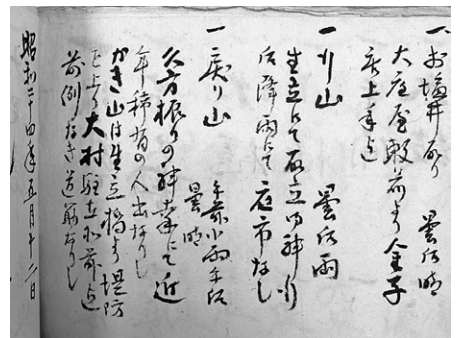 一、お塩井取り 曇后晴
大庄屋敷前より金子
売上手迄
一 行山 曇后雨
生立にて取立 御神行
后降雨にて庭市なし
一 戻り山 午前小雨午后曇晴
久方振りの神幸にて近
年稀有の人出なりし
かき山は生立橋より堤防
を上り大村駐在所前迄
前例なき道筋なりし
昭和二十四年五月十六日